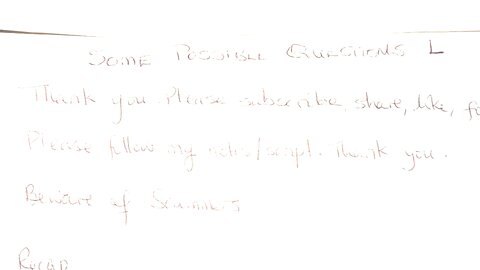 SOME POSSIBLE QUESTIONS L
Thank you. Please subscribe, share, like,
Please follow my notes/script. Thank you.
Beware of Scammers
Recap